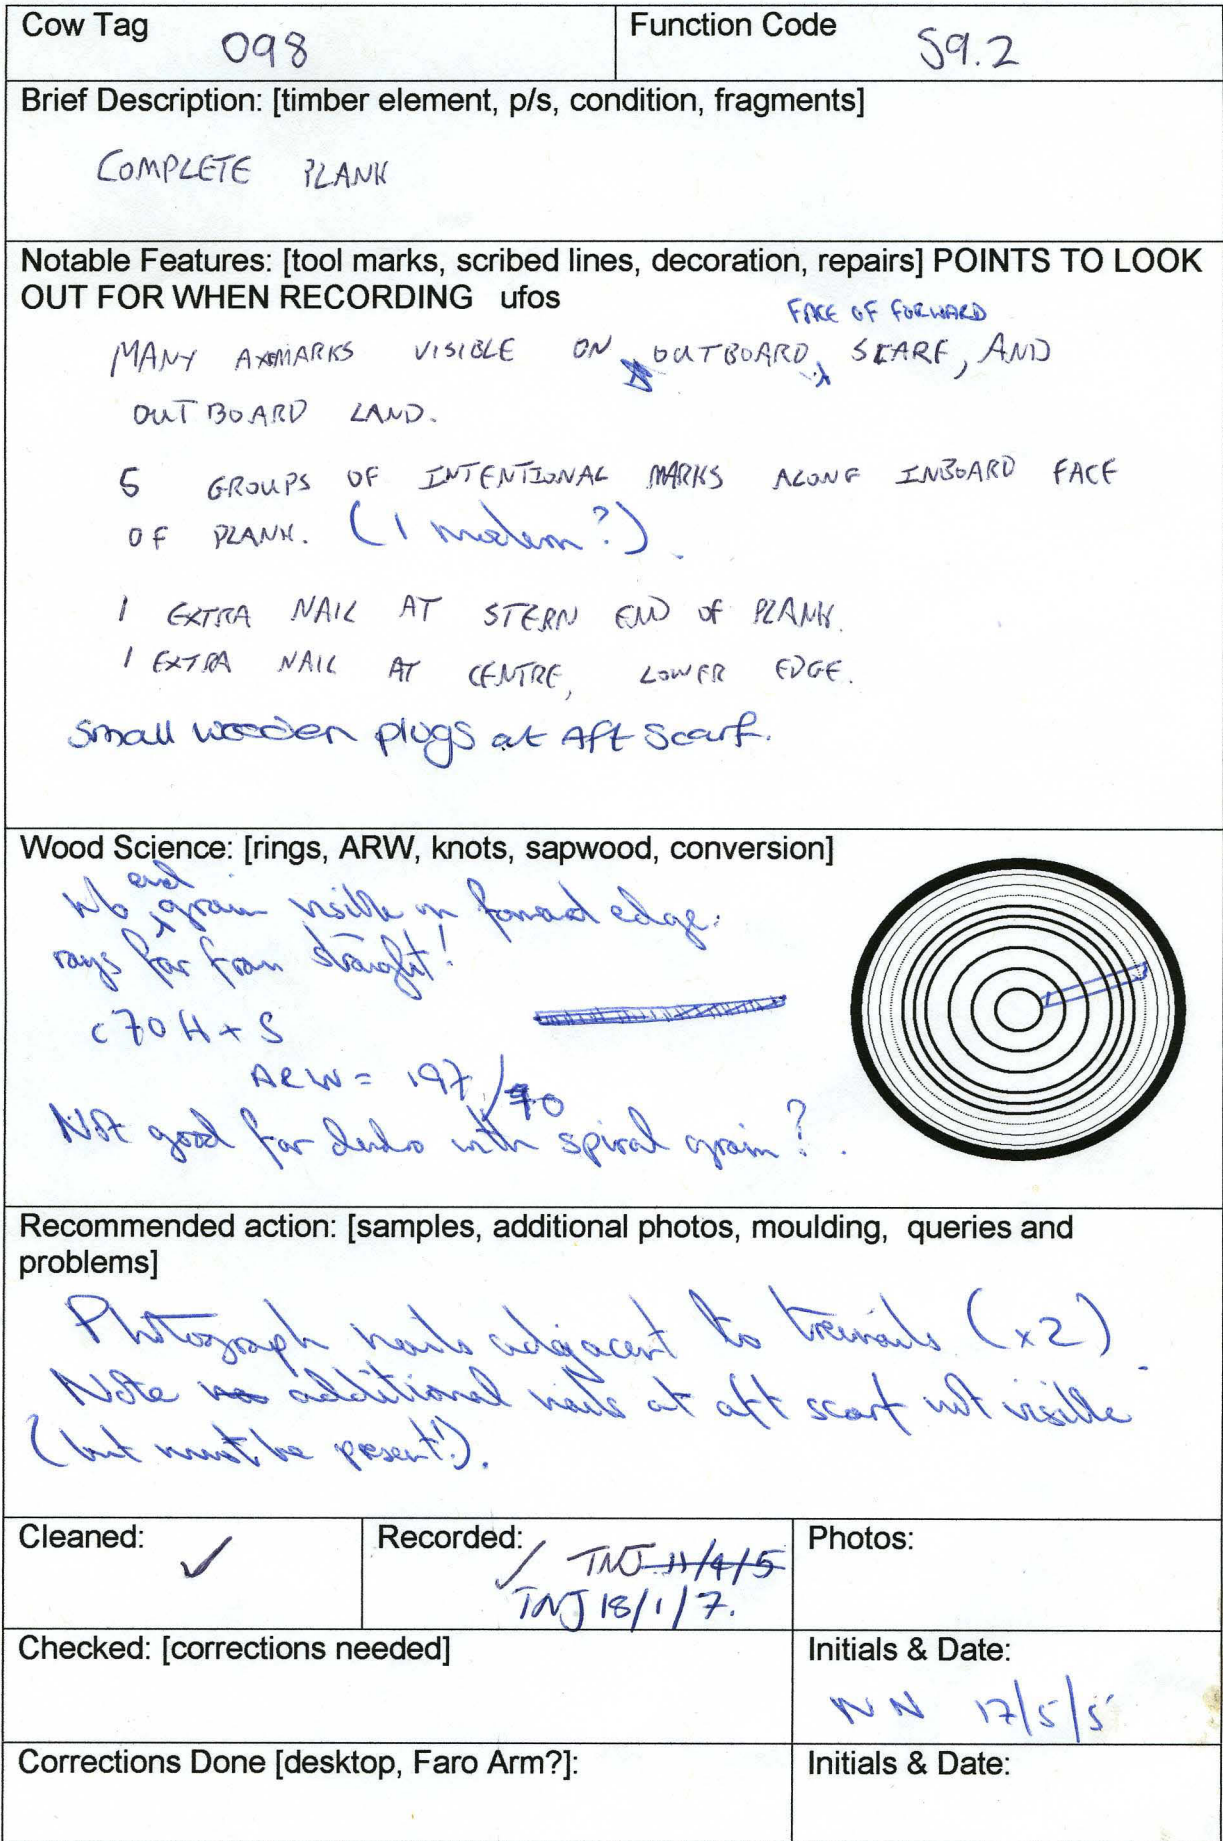 Cow Tag 098 Function Code S9.2
Brief Description: [timber element, p/s, condition, fragments]
COMPLETE PLANK
Notable Features: [tool marks, scribed lines, decoration, repairs] POINTS TO LOOK
OUT FOR WHEN RECORDING ufos
FACE OF FORWARD
MANY AXEMARKS VISIBLE ON OUTBOARD SCARF, AND
OUTBOARD LAND.
5 GROUPS OF INTENTIONAL MARKS ALONG INBOARD FACE
OF PLANK. (1 modern?).
1 EXTRA NAIL AT STERN END OF PLANK.
1 EXTRA NAIL AT CENTRE, LOWER EDGE.
Small wooden plugs at Aft Scarf.
Wood Science: [rings, ARW, knots, sapwood, conversion]
end
No grain visible on forward edge.
rays far from straight!
c70 H + S
ARW = 197/70
Not good for dendro with spiral grain?.
Recommended action: [samples, additional photos, moulding, queries and
problems]
Photograph nails adjacent to treenails (x2).
Note additional nails at aft scarf not visible
(but must be present!).
Cleaned: ✓ Recorded: / TNJ 11/4/5 Photos:
TNJ 18/1/7.
Checked: [corrections needed] Initials & Date:
NN 17/5/5
Corrections Done [desktop, Faro Arm?]: Initials & Date: